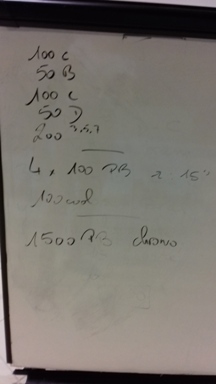 100 c
50 B
100 c
50 D
200 3,5,7
4 x 100 PB r: 15"
100 cool
1500 PB chrono